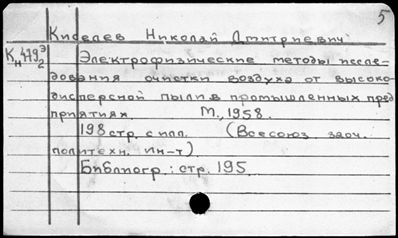 5
Киселев Николай Дмитриевич
Кн479э2 Электрофизические методы иссле-
дования очистки воздуха от высоко-
дисперсной пыли в промышленных пред
приятиях. М., 1958.
198 стр. с илл. (Всесоюз. заоч.
политехн. ин-т)
Библиогр: стр. 195